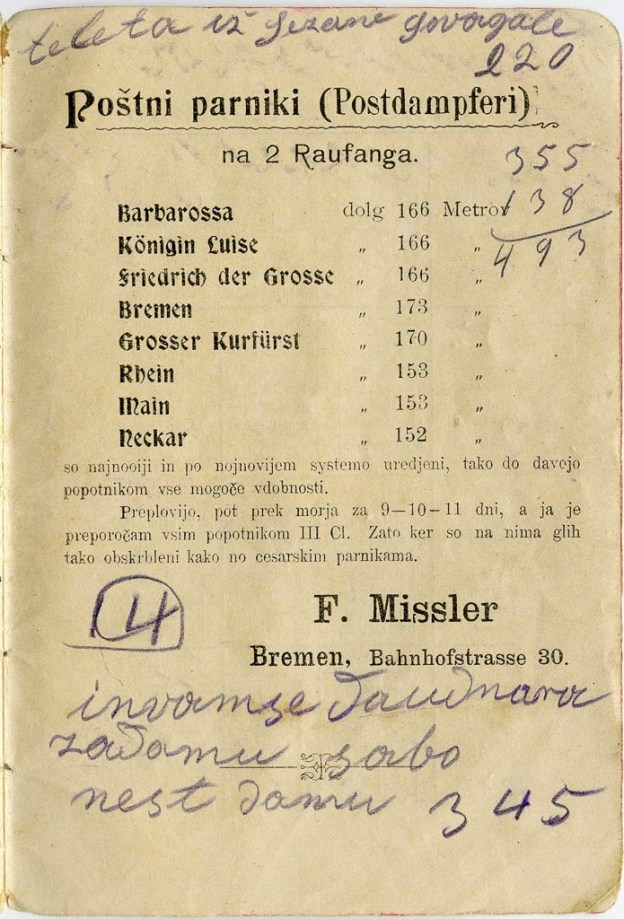 teleta iz sezane govagale
220
Poštni parniki (Postdampferi)
na 2 Raufanga.
355
138
493
Barbarossa dolg 166 Metrov
Königin Luise „ 166 „
Friedrich der Grosse „ 166 „
Bremen „ 173 „
Grosser Kurfürst „ 170 „
Rhein „ 153 „
Main „ 153 „
Neckar „ 152 „
so najnooiji in po nojnovijem systemo uredjeni, tako do davejo
popotnikom vse mogoče vdobnosti.
Preplovijo, pot prek morja za 9—10—11 dni, a ja je
preporočam vsim popotnikom III Cl. Zato ker so na nima glih
tako obskrbleni kako no cesarskim parnikama.
14
F. Missler
Bremen, Bahnhofstrasse 30.
zadamu sabo
nest damu 345